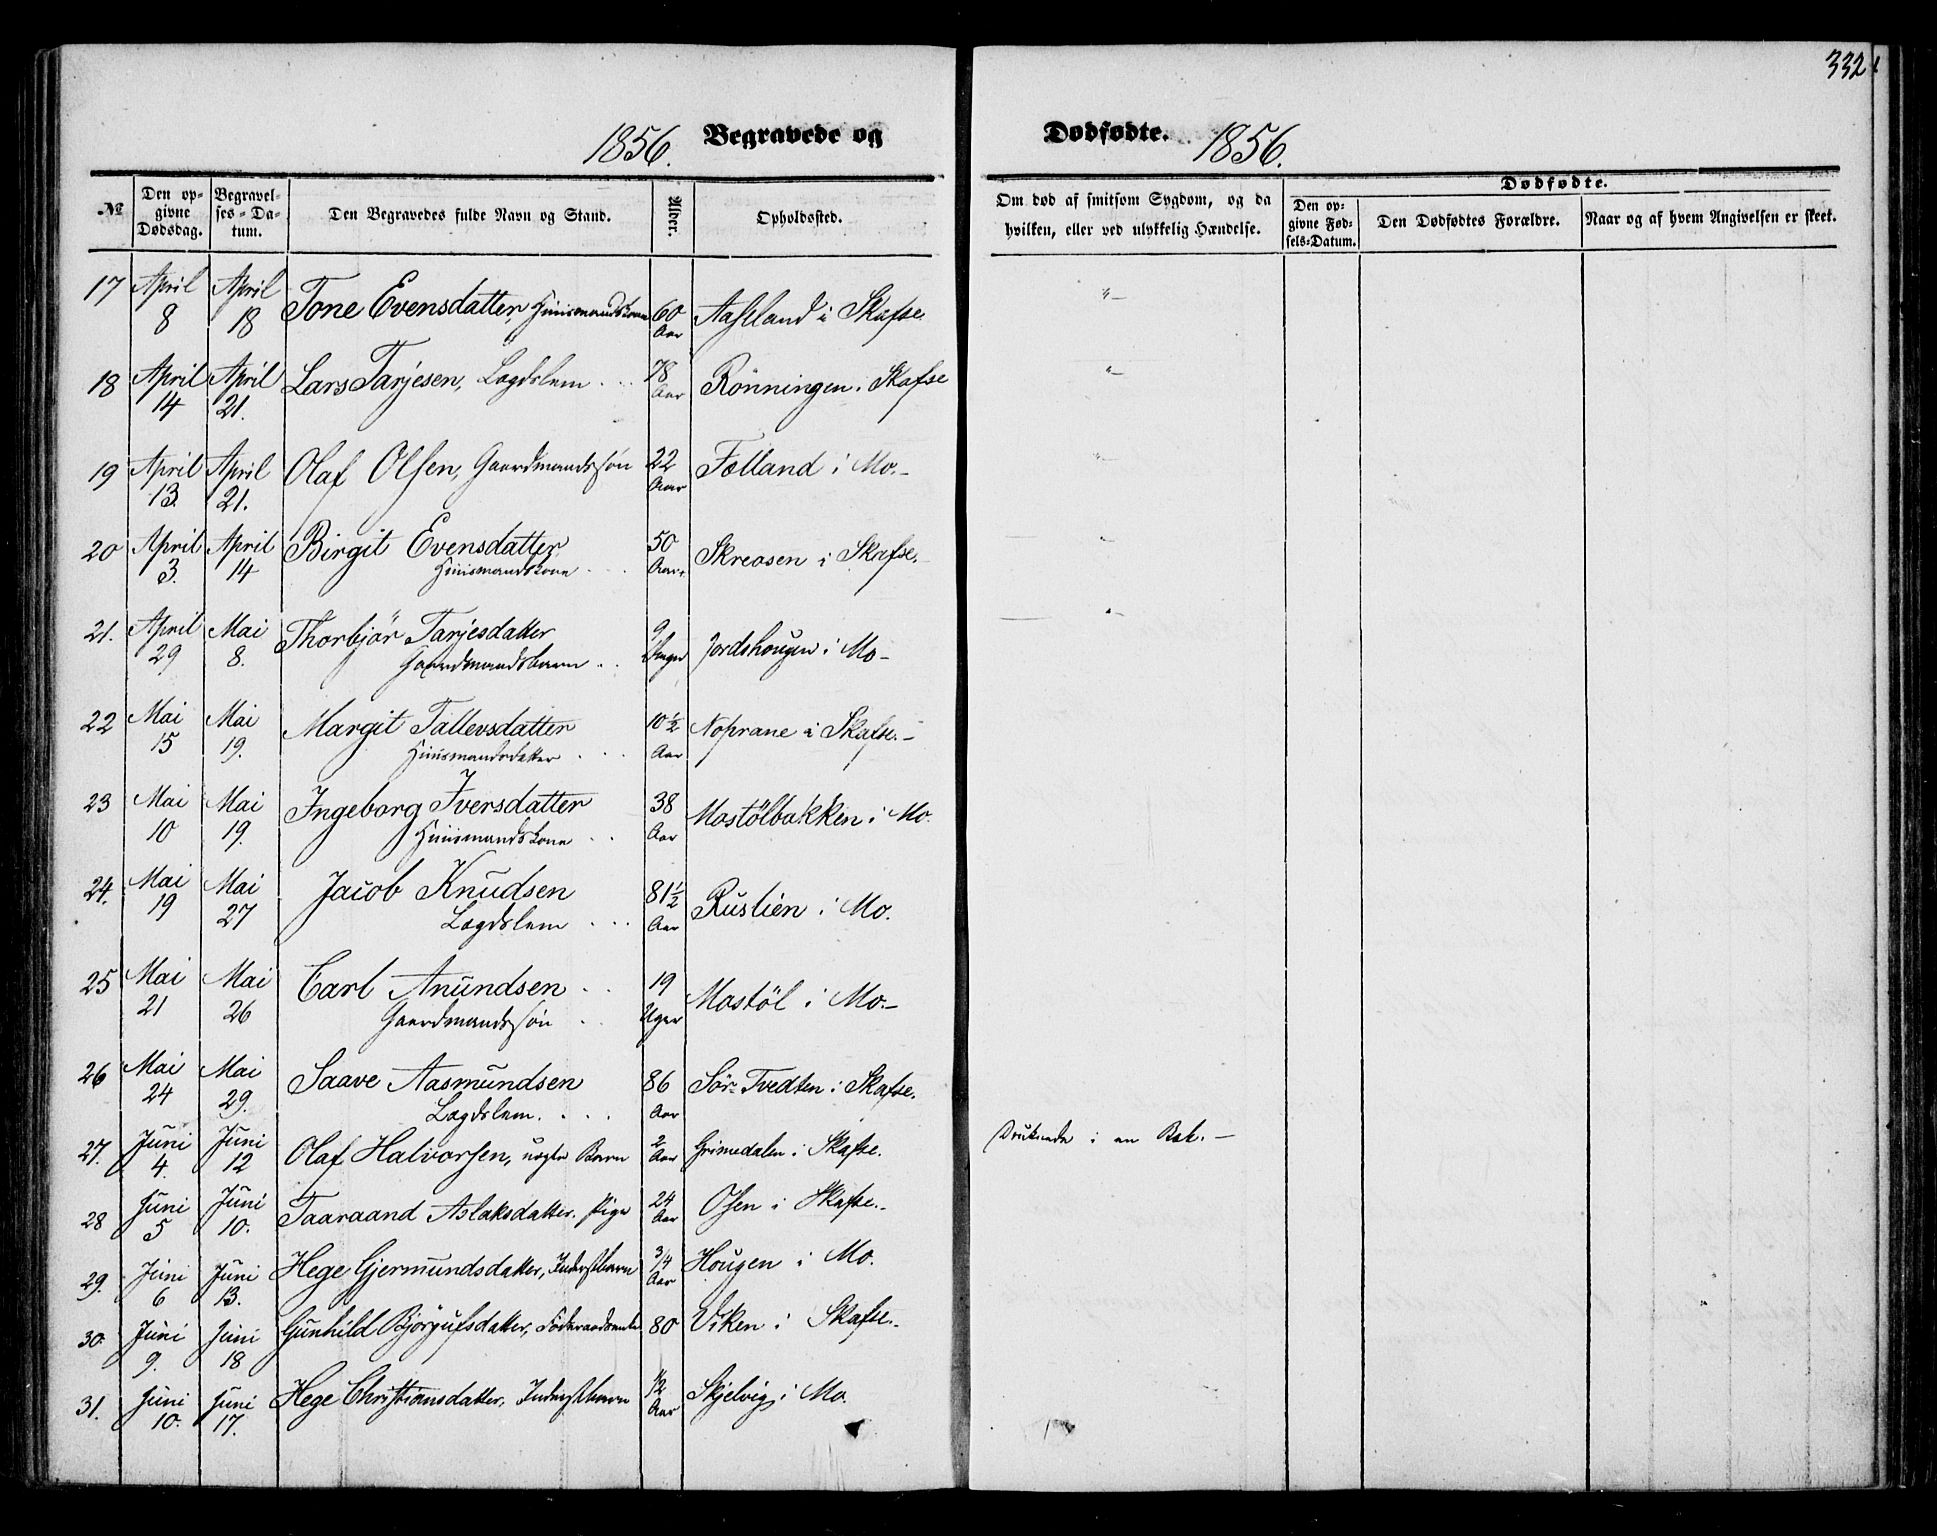 332
1856. Begravede og Dødfødte. 1856.
№ Den opgivne Dødsdag. Begravelses-Datum. Den Begravedes fulde Navn og Stand. Alder. Opholdssted. Om død af smitsom Sygdom, og da hvilken, eller ved ulykkelig Hændelse. Dødfødte. Den opgivne Fødsels-Datum. Den Dødfødtes Forældre. Naar og af hvem Angivelsen er skeet.
17 April 8 April 18 Tone Evensdatter, Huusmandskone 60 Aar Aaseland i Skafse. "–
18 April 14 April 21. Lars Tarjesen, Lægdslem 78 Aar Rönningen i Skafse "–
19 April 13. April 21. Olaf Olsen, Gaardmandssøn 22 Aar Fælland i Mo.– "–
20 April 3. April 14 Birgit Evensdatter Huusmandskone 50 Aar Skreosen i Skafse.– "
21. April 29 Mai 8. Thorbjör Tarjesdatter Gaardmandsbarn 9 Uger Jordshougen i Mo– "–
22 Mai 15 Mai 19. Margit Tallevsdatter Huusmandsdatter 10½ Aar Noprane i Skafse.–
23 Mai 10 Mai 19. Ingeborg Iversdatter Huusmandskone 38 Aar Mostölbakken i Mo.
24. Mai 19 Mai 27 Jacob Knudsen Lægdslem 81½ Aar Rustlien i Mo.
25 Mai 21 Mai 26 Carl Anundsen Gaardmandssøn 19 Uger Mostöl i Mo.–
26 Mai 24 Mai 29. Saave Aasmundsen Lægdslem. 86 Aar Sör-Tvedten i Skafse.
27. Juni 4. Juni 12 Olaf Halvorsen, uægte Barn 2 Aar Grimedalen i Skafse. Druknede i en Bæk.–
28 Juni 5 Juni 10. Taaraand Aslaksdatter. Pige 24 Aar Osen i Skafse.–
29. Juni 6 Juni 13. Hege Gjermundsdatter, Inderstbarn 3/4 Aar Hougen i Mo.
30. Juni 9. Juni 18 Gunhild Björgufsdatter, Föderaadsenke 80 Viken i Skafse.–
31. Juni 10. Juni 17. Hege Christiansdatter, Inderstbarn ½ Aar Skjelvig i Mo.